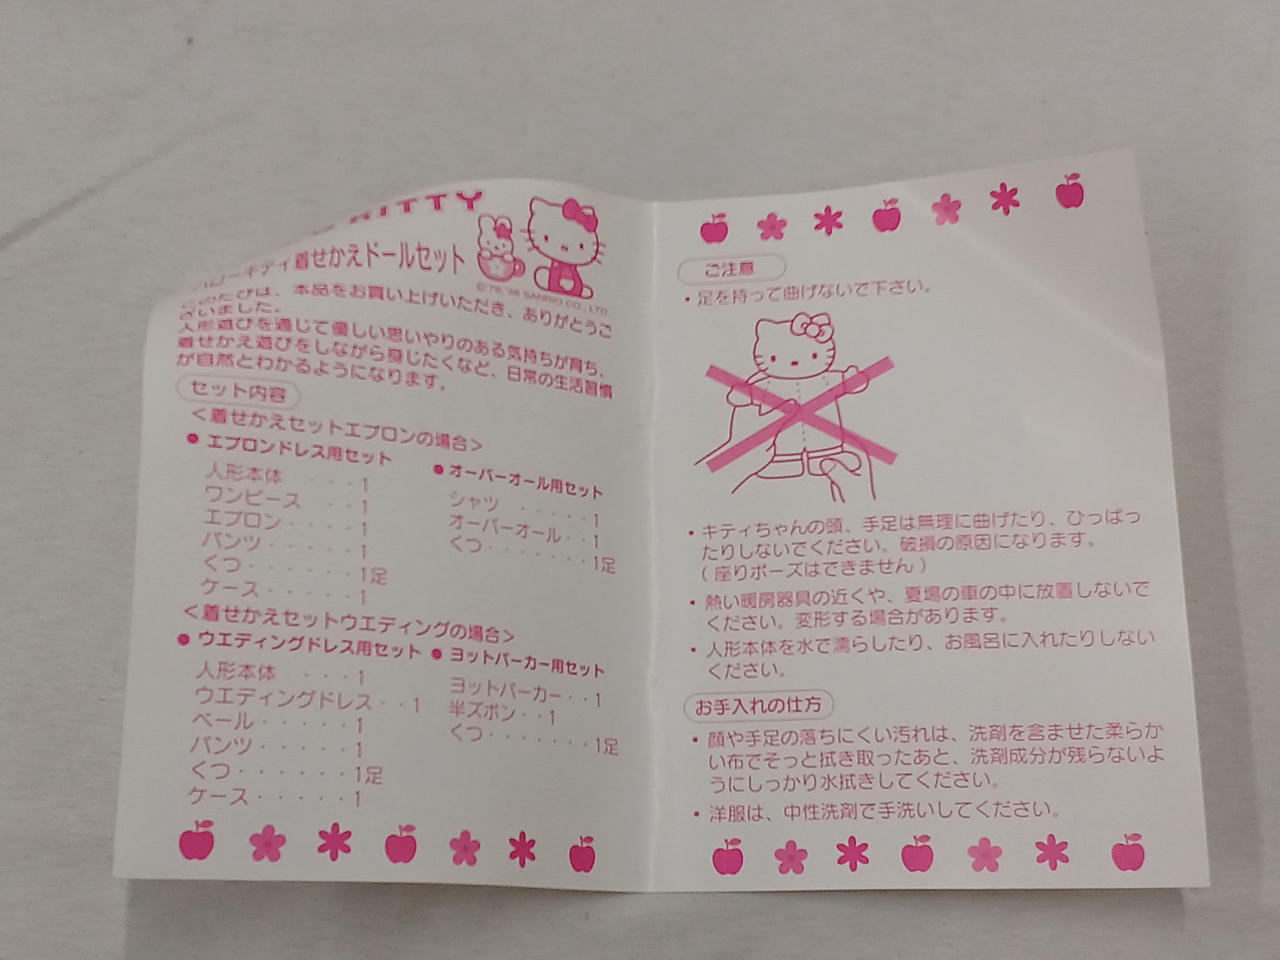 KITTY
ハローキティ着せかえドールセット
©'76,'98 SANRIO CO., LTD.
このたびは、本品をお買い上げいただき、ありがとうご
ざいました。
人形遊びを通じて優しい思いやりのある気持ちが育ち、
着せかえ遊びをしながら身じたくなど、日常の生活習慣
が自然とわかるようになります。
セット内容
<着せかえセットエプロンの場合>
●エプロンドレス用セット
人形本体 ・・・1
ワンピース ・・1
エプロン・・・・1
パンツ・・・・・1
くつ・・・・・・1足
ケース・・・・・1
●オーバーオール用セット
シャツ ・・・・・1
オーバーオール・・1
くつ・・・・・・・1足
<着せかえセットウエディングの場合>
●ウエディングドレス用セット
人形本体 ・・・1
ウエディングドレス・・1
ベール・・・・・1
パンツ・・・・・1
くつ・・・・・・1足
ケース・・・・・1
●ヨットパーカー用セット
ヨットパーカー・・1
半ズボン・・1
くつ・・・・・・・1足
ご注意
・足を持って曲げないで下さい。
・キティちゃんの頭、手足は無理に曲げたり、ひっぱっ
たりしないでください。破損の原因になります。
(座りポーズはできません)
・熱い暖房器具の近くや、夏場の車の中に放置しないで
ください。変形する場合があります。
・人形本体を水で濡らしたり、お風呂に入れたりしない
ください。
お手入れの仕方
・顔や手足の落ちにくい汚れは、洗剤を含ませた柔らか
い布でそっと拭き取ったあと、洗剤成分が残らないよ
うにしっかり水拭きしてください。
・洋服は、中性洗剤で手洗いしてください。